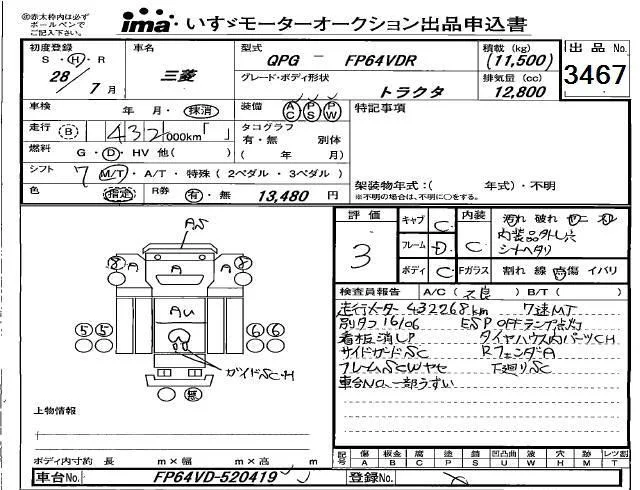 ㊟赤太枠内は必ず
ボールペンで
ご記入下さい。
ima いすゞモーターオークション出品申込書
初度登録 車名 型式 積載 (kg) 出品 No.
S・H・R 28/7月 三菱 QPG － FP64VDR (11,500) 3467
グレード・ボディ形状 トラクタ 排気量 (cc) 12,800
車検 年 月・抹消 装備 AC PS PW 特記事項
走行 B 432,000km「 」 タコグラフ 有・無 別体
燃料 G・D・HV 他( ) ( 年 月)
シフト 7 M/T・A/T・特殊 (2ペダル・3ペダル)
色 指定 R券 有・無 13,480 円
架装物年式:( 年式)・不明
※不明の場合は、不明に○をする。
評価 3
キャブ C 内装 C 汚れ 破れ
フレーム D 内装品外し穴
シートヘタリ
ボディ C Fガラス 割れ 線 傷 イバリ
検査員報告 A/C (不良) B/T ( )
走行メーター 432268km 7速MT
別タコ 16/06 ESP OFFランプ点灯
看板消しP タイヤハウス内パーツCH
サイドガードSC RフェンダA
フレームSCWヤセ 下廻りSC
車台NO.一部うすい
AS
8 A A A 8
Au
5 5 6 6
ガイドSC・H
無
上物情報
ボディ内寸約 長 m×幅 m×高 m
記号 傷A 板金B 腐C 塗P 錆S 凹凸曲U 波W 穴H 跡M レツ割T
車台No. FP64VD-520419 登録No.